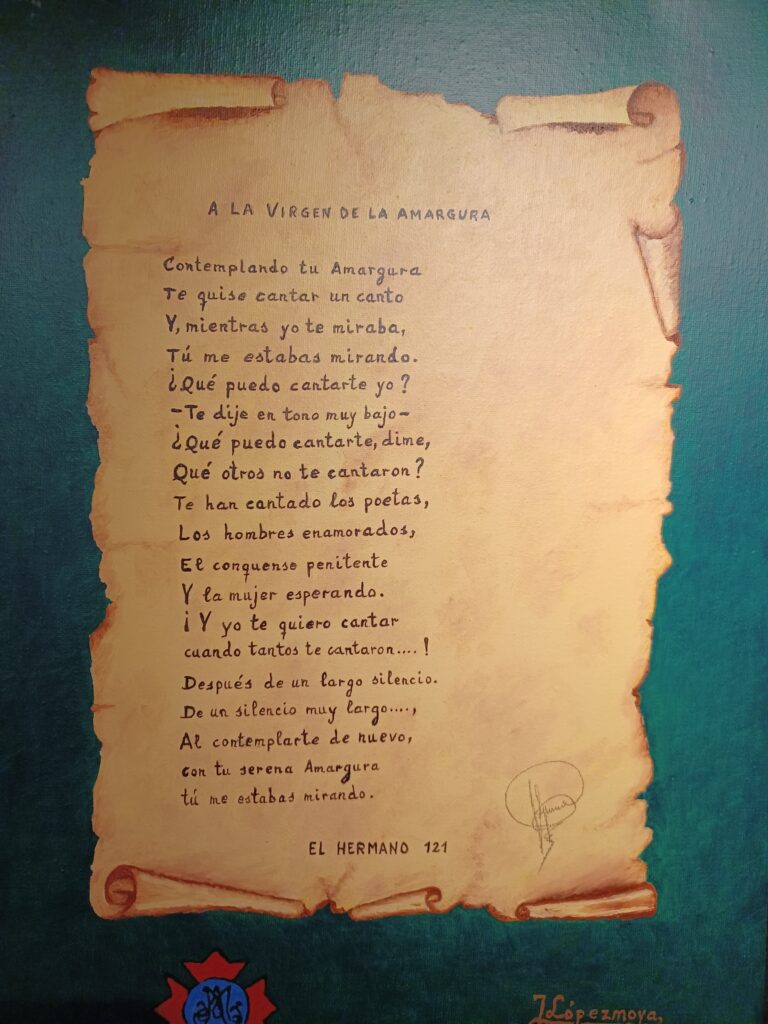 A LA VIRGEN DE LA AMARGURA
Contemplando tu Amargura
Te quise cantar un canto
Y, mientras yo te miraba,
Tú me estabas mirando.
¿Qué puedo cantarte yo?
-Te dije en tono muy bajo-
¿Qué puedo cantarte, dime,
Qué otros no te cantaron?
Te han cantado los poetas,
Los hombres enamorados,
El conquense penitente
Y la mujer esperando.
¡Y yo te quiero cantar
cuando tantos te cantaron....!
Después de un largo silencio.
De un silencio muy largo....,
Al contemplarte de nuevo,
con tu serena Amargura
tú me estabas mirando.
EL HERMANO 121
J.Lópezmoya,